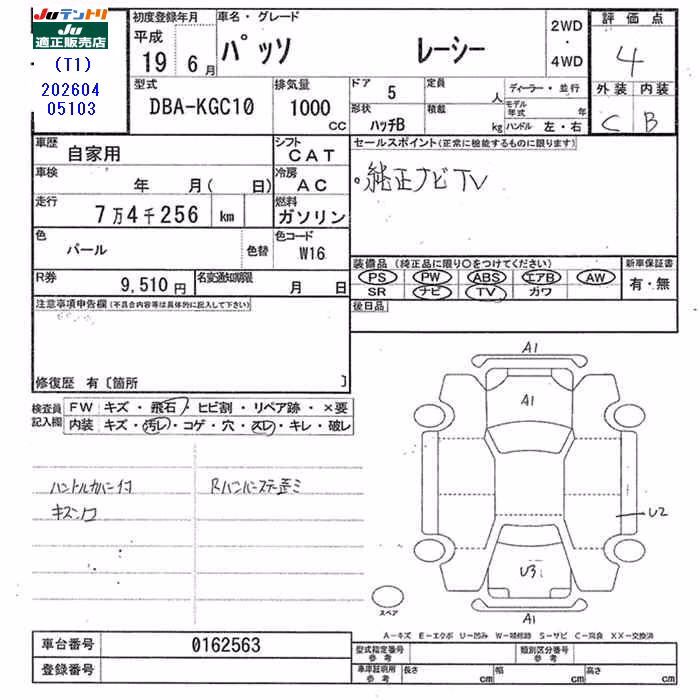 JUテントリ
JU
適正販売店
(T1)
202604
05103
初度登録年月
平成
19 6月
車名・グレード
パッソ レーシー
2WD
・
4WD
評価点
4
型式
DBA-KGC10
排気量
1000
CC
ドア
5
定員
人
ディーラー・並行
形状
ハッチB
積載
kg
モデル年式
年
ハンドル 左・右
外装 内装
C B
車歴
自家用
シフト
CAT
車検
年 月( 日)
冷房
AC
走行
7万4千256 km
燃料
ガソリン
色
パール
色替
色コード
W16
R券
9,510円
名変通知期限
月 日
セールスポイント(正常に機能するものに限ります)
・純正ナビTV
装備品(純正品に限り○をつけてください)
PS PW ABS エアB AW
SR ナビ TV ガワ
新車保証書
有・無
後日品
注意事項申告欄(不具合内容等は具体的に記入して下さい)
修復歴 有〔箇所 〕
検査員
記入欄
FW キズ・飛石・ヒビ割・リペア跡・×要
内装 キズ・汚レ・コゲ・穴・スレ・キレ・破レ
ハンドルカバー付
Rバンパーステー歪ミ
A1
A1
U2
U3
A1
スペア
A-キズ E-エクボ U-凹み W-補修跡 S-サビ C-腐食 XX-交換済
車台番号
0162563
登録番号
型式指定番号
参考
類別区分番号
参考
車庫証明用
参考
長さ
cm
幅
cm
高さ
cm